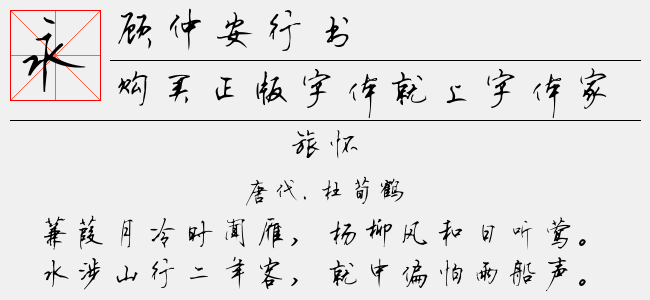 永
顾仲安行书
购买正版字体就上字体家
旅怀
唐代.杜荀鹤
蒹葭月冷时闻雁，杨柳风和日听莺。
水涉山行二年客，就中偏怕雨船声。